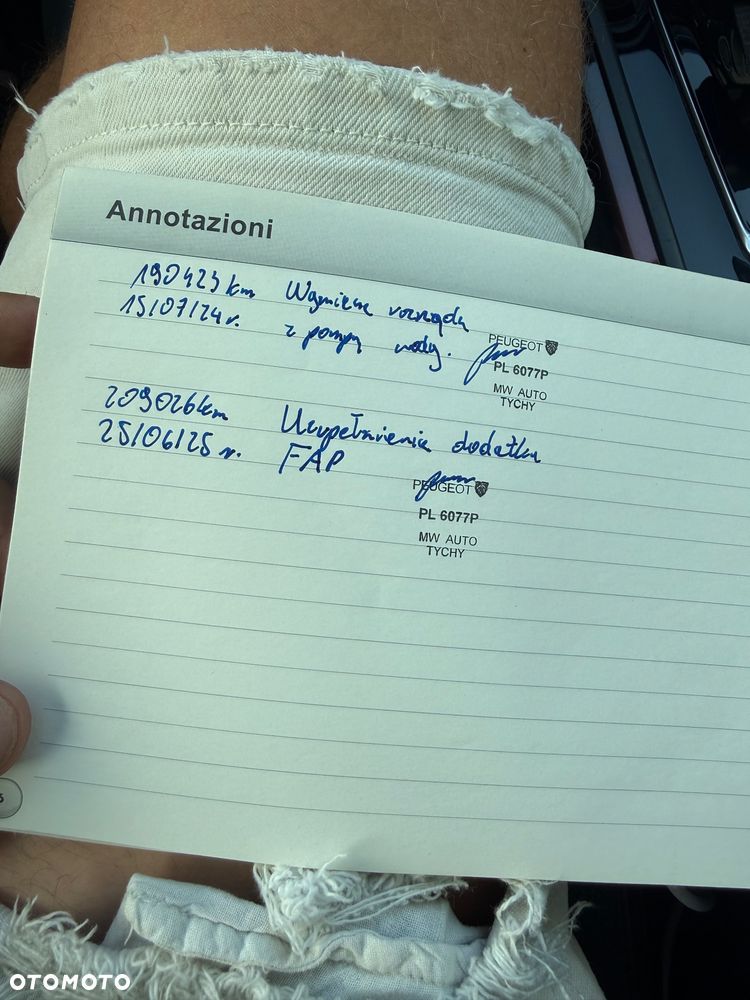 Annotazioni
190423 km Wymiana rozrządu
15/07/24 r. z pompą wody.
PEUGEOT
PL 6077P
MW AUTO
TYCHY
209026 km Uzupełnienie dodatku
25/06/25 r. FAP
PEUGEOT
PL 6077P
MW AUTO
TYCHY
OTOMOTO